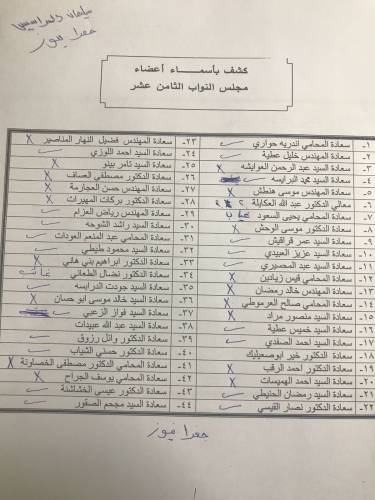 سليمان البراسيس
جفرا نيوز
كشف بأسماء أعضاء
مجلس النواب الثامن عشر
١- سعادة المحامي اندريه حواري
٢- سعادة المهندس خليل عطية
٣- سعادة السيد عبد الرحمن العوايشه X
٤- سعادة السيد محمد البرايسه
٥- سعادة المهندس موسى هنطش X
٦- معالي الدكتور عبد الله العكايلة
٧- سعادة المحامي يحيى السعود غائب
٨- سعادة الدكتور موسى الوحش X
٩- سعادة السيد عمر قراقيش
١٠- سعادة السيد عزيز العبيدي
١١- سعادة السيد عبد المحسيري
١٢- سعادة المحامي قيس زيادين X
١٣- سعادة المهندس خالد رمضان X
١٤- سعادة المحامي صالح العرموطي X
١٥- سعادة السيد منصور مراد X
١٦- سعادة السيد خميس عطية
١٧- سعادة السيد احمد الصفدي
١٨- سعادة الدكتور خير ابوصعيليك
١٩- سعادة الدكتور احمد الرقب X
٢٠- سعادة السيد احمد الهميسات X
٢١- سعادة السيد رمضان الحنيطي
٢٢- سعادة الدكتور نصار القيسي
٢٣- سعادة المهندس فضيل النهار المناصير X
٢٤- سعادة السيد احمد اللوزي
٢٥- سعادة السيد تامر بينو X
٢٦- سعادة الدكتور مصطفى العساف X
٢٧- سعادة المهندس حسن العجارمة X
٢٨- سعادة الدكتور بركات المهيرات X
٢٩- سعادة المهندس رياض العزام
٣٠- سعادة السيد راشد الشوحه
٣١- سعادة المحامي عبد المنعم العودات
٣٢- سعادة السيد محمود طيطي
٣٣- سعادة الدكتور ابراهيم بني هاني X
٣٤- سعادة الدكتور نضال الطعاني غائب
٣٥- سعادة السيد جودت الدرابسه
٣٦- سعادة السيد خالد موسى ابو حسان X
٣٧- سعادة السيد فواز الزعبي
٣٨- سعادة السيد عبد الله عبيدات
٣٩- سعادة الدكتور وائل رزوق
٤٠- سعادة الدكتور حسني الشياب
٤١- سعادة المحامي الدكتور مصطفى الخصاونة X
٤٢- سعادة المحامي يوسف الجراح X
٤٣- سعادة الدكتور عيسى الخشاشنة
٤٤- سعادة السيد مجحم الصقور
جفرا نيوز